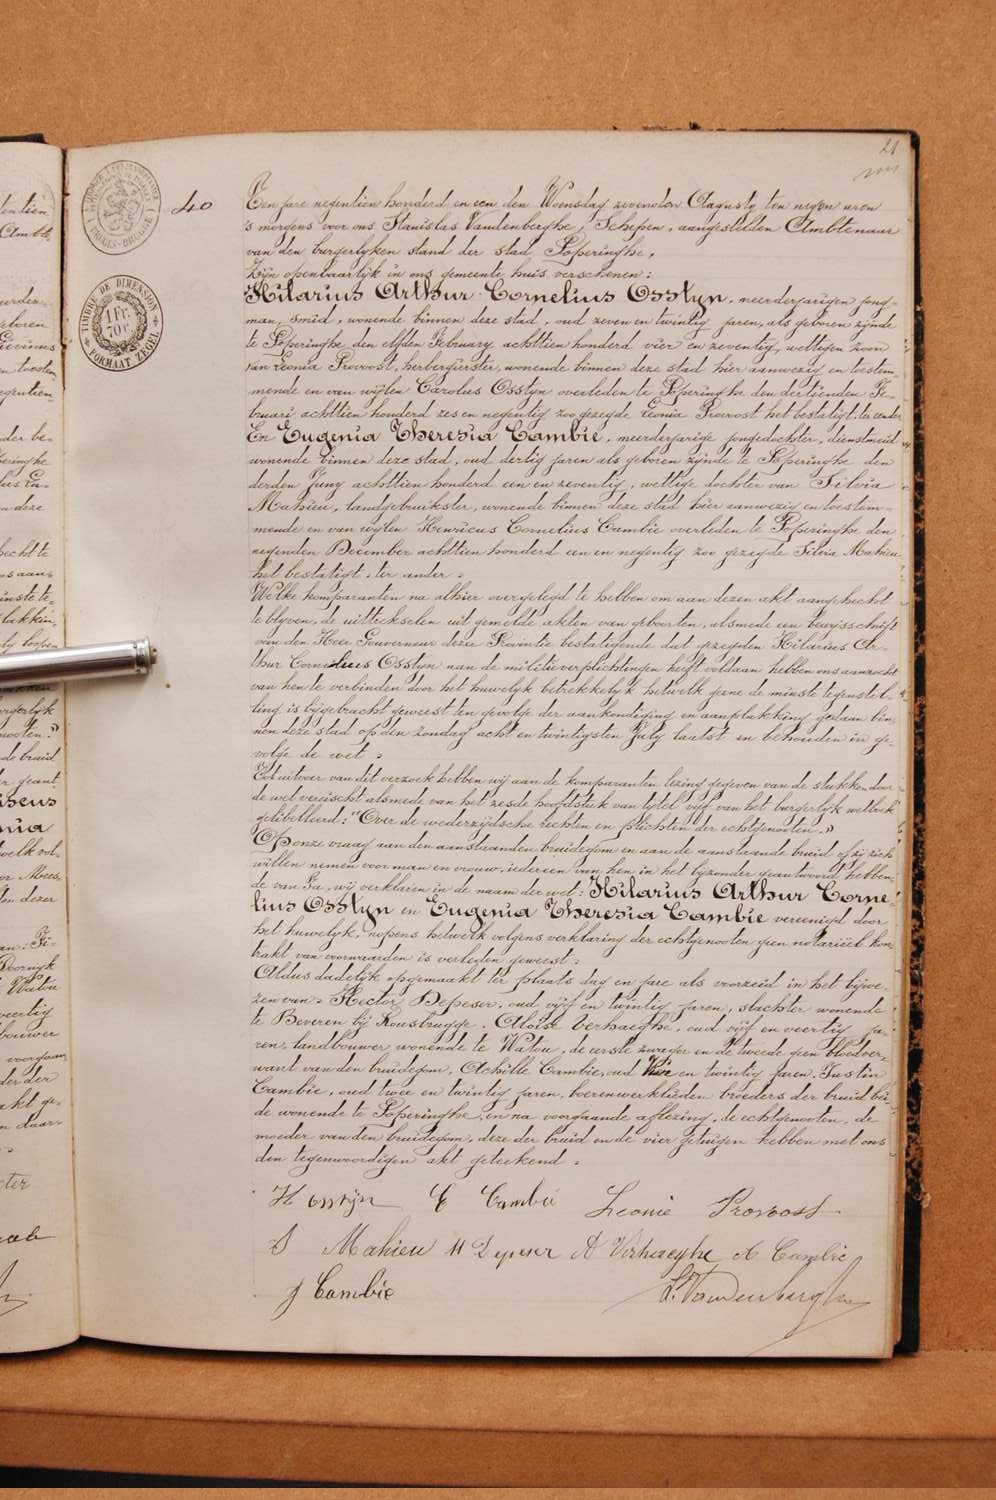 21
40
Een jare negentien honderd en een den Woensdag zevensten Augusty ten negen uren
's morgens voor ons Stanislas Vandenberghe, Schepen, aangestelden Ambtenaar
van den burgerlyken stand der stad Poperinghe,
Zijn openbaarlyk in ons gemeente huis verschenen:
Hilarius Arthur Cornelius Osstyn, meerderjarigen jong-
man, smid, wonende binnen deze stad, oud zeven en twintig jaren, als geboren zijnde
te Poperinghe den elfden February achttien honderd vier en zeventig, wettigen zoon
van Leonia Provoost, herbergierster, wonende binnen deze stad hier aanwezig en toestem-
mende en van wijlen Carolus Osstyn overleden te Poperinghe den dertienden Fe-
bruari achttien honderd zes en negentig zoo gezegde Leonia Provoost het bestatigt, ter eender
En Eugenia Theresia Cambie, meerderjarige jongedochter, dienstmeid
wonende binnen deze stad, oud dertig jaren als geboren zijnde te Poperinghe den
derden Juny achttien honderd een en zeventig, wettige dochter van Silvia
Mahieu, landgebruikster, wonende binnen deze stad hier aanwezig en toestem-
mende en van wijlen Henricus Cornelius Cambie overleden te Poperinghe den
negenden December achttien honderd een en negentig zoo gezegde Silvia Mahieu
het bestatigt, ter ander.
Welke komparanten na alhier overgelegd te hebben om aan dezen akt aangehecht
te blyven, de uittrekselen uit gemelde akten van geboorten, alsmede een bewysschrift
van den Heer Gouverneur dezer Provintie bestatigende dat gezegden Hilarius Ar-
thur Cornelius Osstyn aan de militieverplichtingen heeft voldaan hebben ons aanzocht
van hen te verbinden door het huwelyk betrekkelyk hetwelk geene de minste tegenstel-
ling is bygebracht geweest ten gevolge der aankondiging en aanplakking gedaan bin-
nen deze stad op den zondag acht en twintigsten July laatst en behouden in ge-
volge de wet.
Tot uitvoer van dit verzoek hebben wij aan de komparanten lezing gegeven van de stukken door
de wet vereischt alsmede van het zesde hoofdstuk van tytel vijf van het burgerlyk wetboek
getibelleerd: "Over de wederzydsche rechten en plichten der echtgenooten."
Op onze vraag aan den aanstaanden bruidegom en aan de aanstaande bruid of zij zich
willen nemen voor man en vrouw, iedereen van hen in het byzonder geantwoord hebben-
de van Ja, wij verklaren in de naam der wet: Hilarius Arthur Corne-
lius Osstyn en Eugenia Theresia Cambie vereenigd door
het huwelyk, nopens hetwelk volgens verklaring der echtgenooten geen notarieël kon-
trakt van voorwaarden is verleden geweest.
Aldus dadelijk opgemaakt ter plaats dag en jare als voorzeid in het bijwe-
zen van: Hector Depeser, oud vijf en twintig jaren, slachter wonende
te Beveren bij Rousbrugge, Aloïse Verhaeghe, oud vijf en veertig ja-
ren, landbouwer wonende te Watou, de eerste zwager en de tweede geen bloedver-
want van den bruidegom, Achille Cambie, oud en twintig jaren, Justin
Cambie, oud twee en twintig jaren, boerenwerklieden broeders der bruid bei-
de wonende te Poperinghe, en na voorgaande aflezing, de echtgenooten, de
moeder van den bruidegom, deze der bruid en de vier getuigen hebben met ons
den tegenwoordigen akt geteekend.
H Osstijn E Cambie Leonie Provoost
S Mahieu H Depeser A Verhaeghe A Cambie
J Cambie S. Vandenberghe
TIMBRE DE DIMENSION
1 Fr.
70 c.
FORMAAT ZEGEL